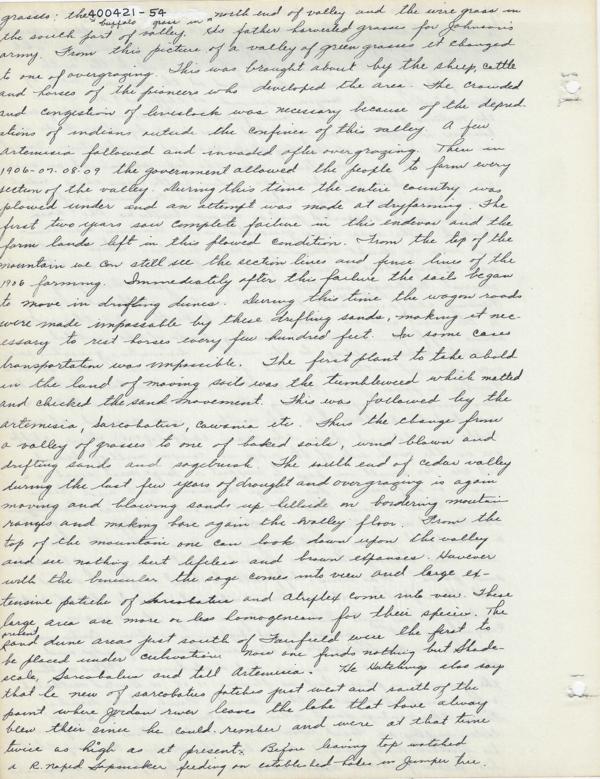 400421-54
grasses; the "buffalo grass in north end of valley and the wire grass in
the south part of valley. His father harvested grasses for Johnson's
army. From this picture of a valley of green grasses it changed
to one of overgrazing. This was brought about by the sheep, cattle
and horses of the pioneers who developed the area. The crowded
and congestion of livestock was necessary because of the depred
ations of indians outside the confines of this valley A few
Artemisia followed and invaded after overgrazing. Then in
1906-07-08-09 the government allowed the people to farm every
section of the valley. During this time the entire country was
plowed under and an attempt was made at dryfarming. The
first two years saw complete failure in this endevor and the
farm lands left in this plowed condition. From the top of the
mountain we can still see the section lines and fence lines of the
1906 farming. Immediately after this failure the soils began
to move in drifting dunes. During this time the wagon roads
were made impassable by these drifting sands, making it nec-
essary to rest horses every few hundred feet. In some cases
transportation was impossible. The first plant to take ahold
in the land of moving soils was the tumbleweed which matted
and checked the sand movement. This was followed by the
artemisia, Sarcobatus, cowania etc. Thus the change from
a valley of grasses to one of baked soils, wind blown and
drifting sands and sagebrush The south end of cedar valley
during the last few years of drought and overgrazing is again
moving and blowing sands up hillside on bordering mountain
ranges and making bare again the valley floor. From the
top of the mountain one can look down upon the valley
and see nothing but lifeless and brown expanses. However
with the binocular the sage comes into view and large ex-
tensive patches of Sarcobatus and Atriplex come into view. These
large area are more or less homogeneous for their species. The
present
sand dune areas just south of Fairfield were the first to
be placed under cultivation now one finds nothing but Shade-
scale, Sarcobatus and tall Artemisia. Mr Hutchings also say
that he new of sarcobatus patches just west and south of the
point where Jordan river leaves the lake that have always
been their since he could rember and were at that time
twice as high as at present. Before leaving top watched
a R. naped Sapsucker feeding on established holes in Juniper tree.